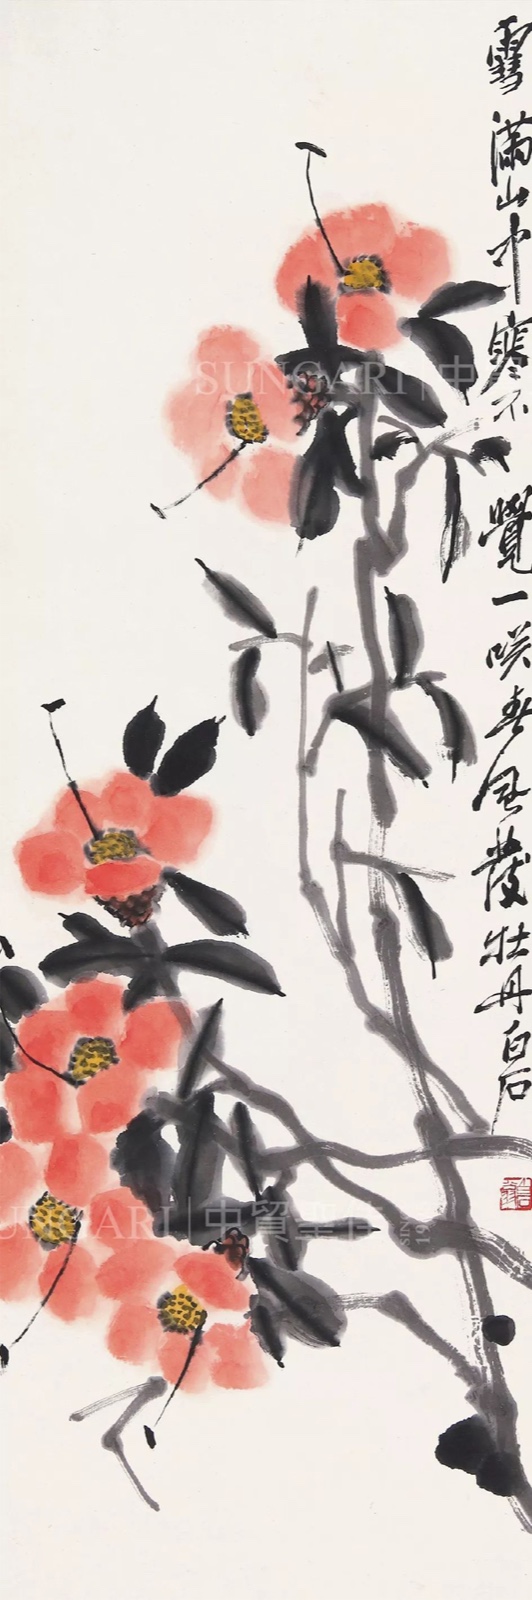 雪满山中寒不觉一咲春风发牡丹白石
SUNGARI | 中貿
SUNGARI | 中貿聖佳
SIN
19